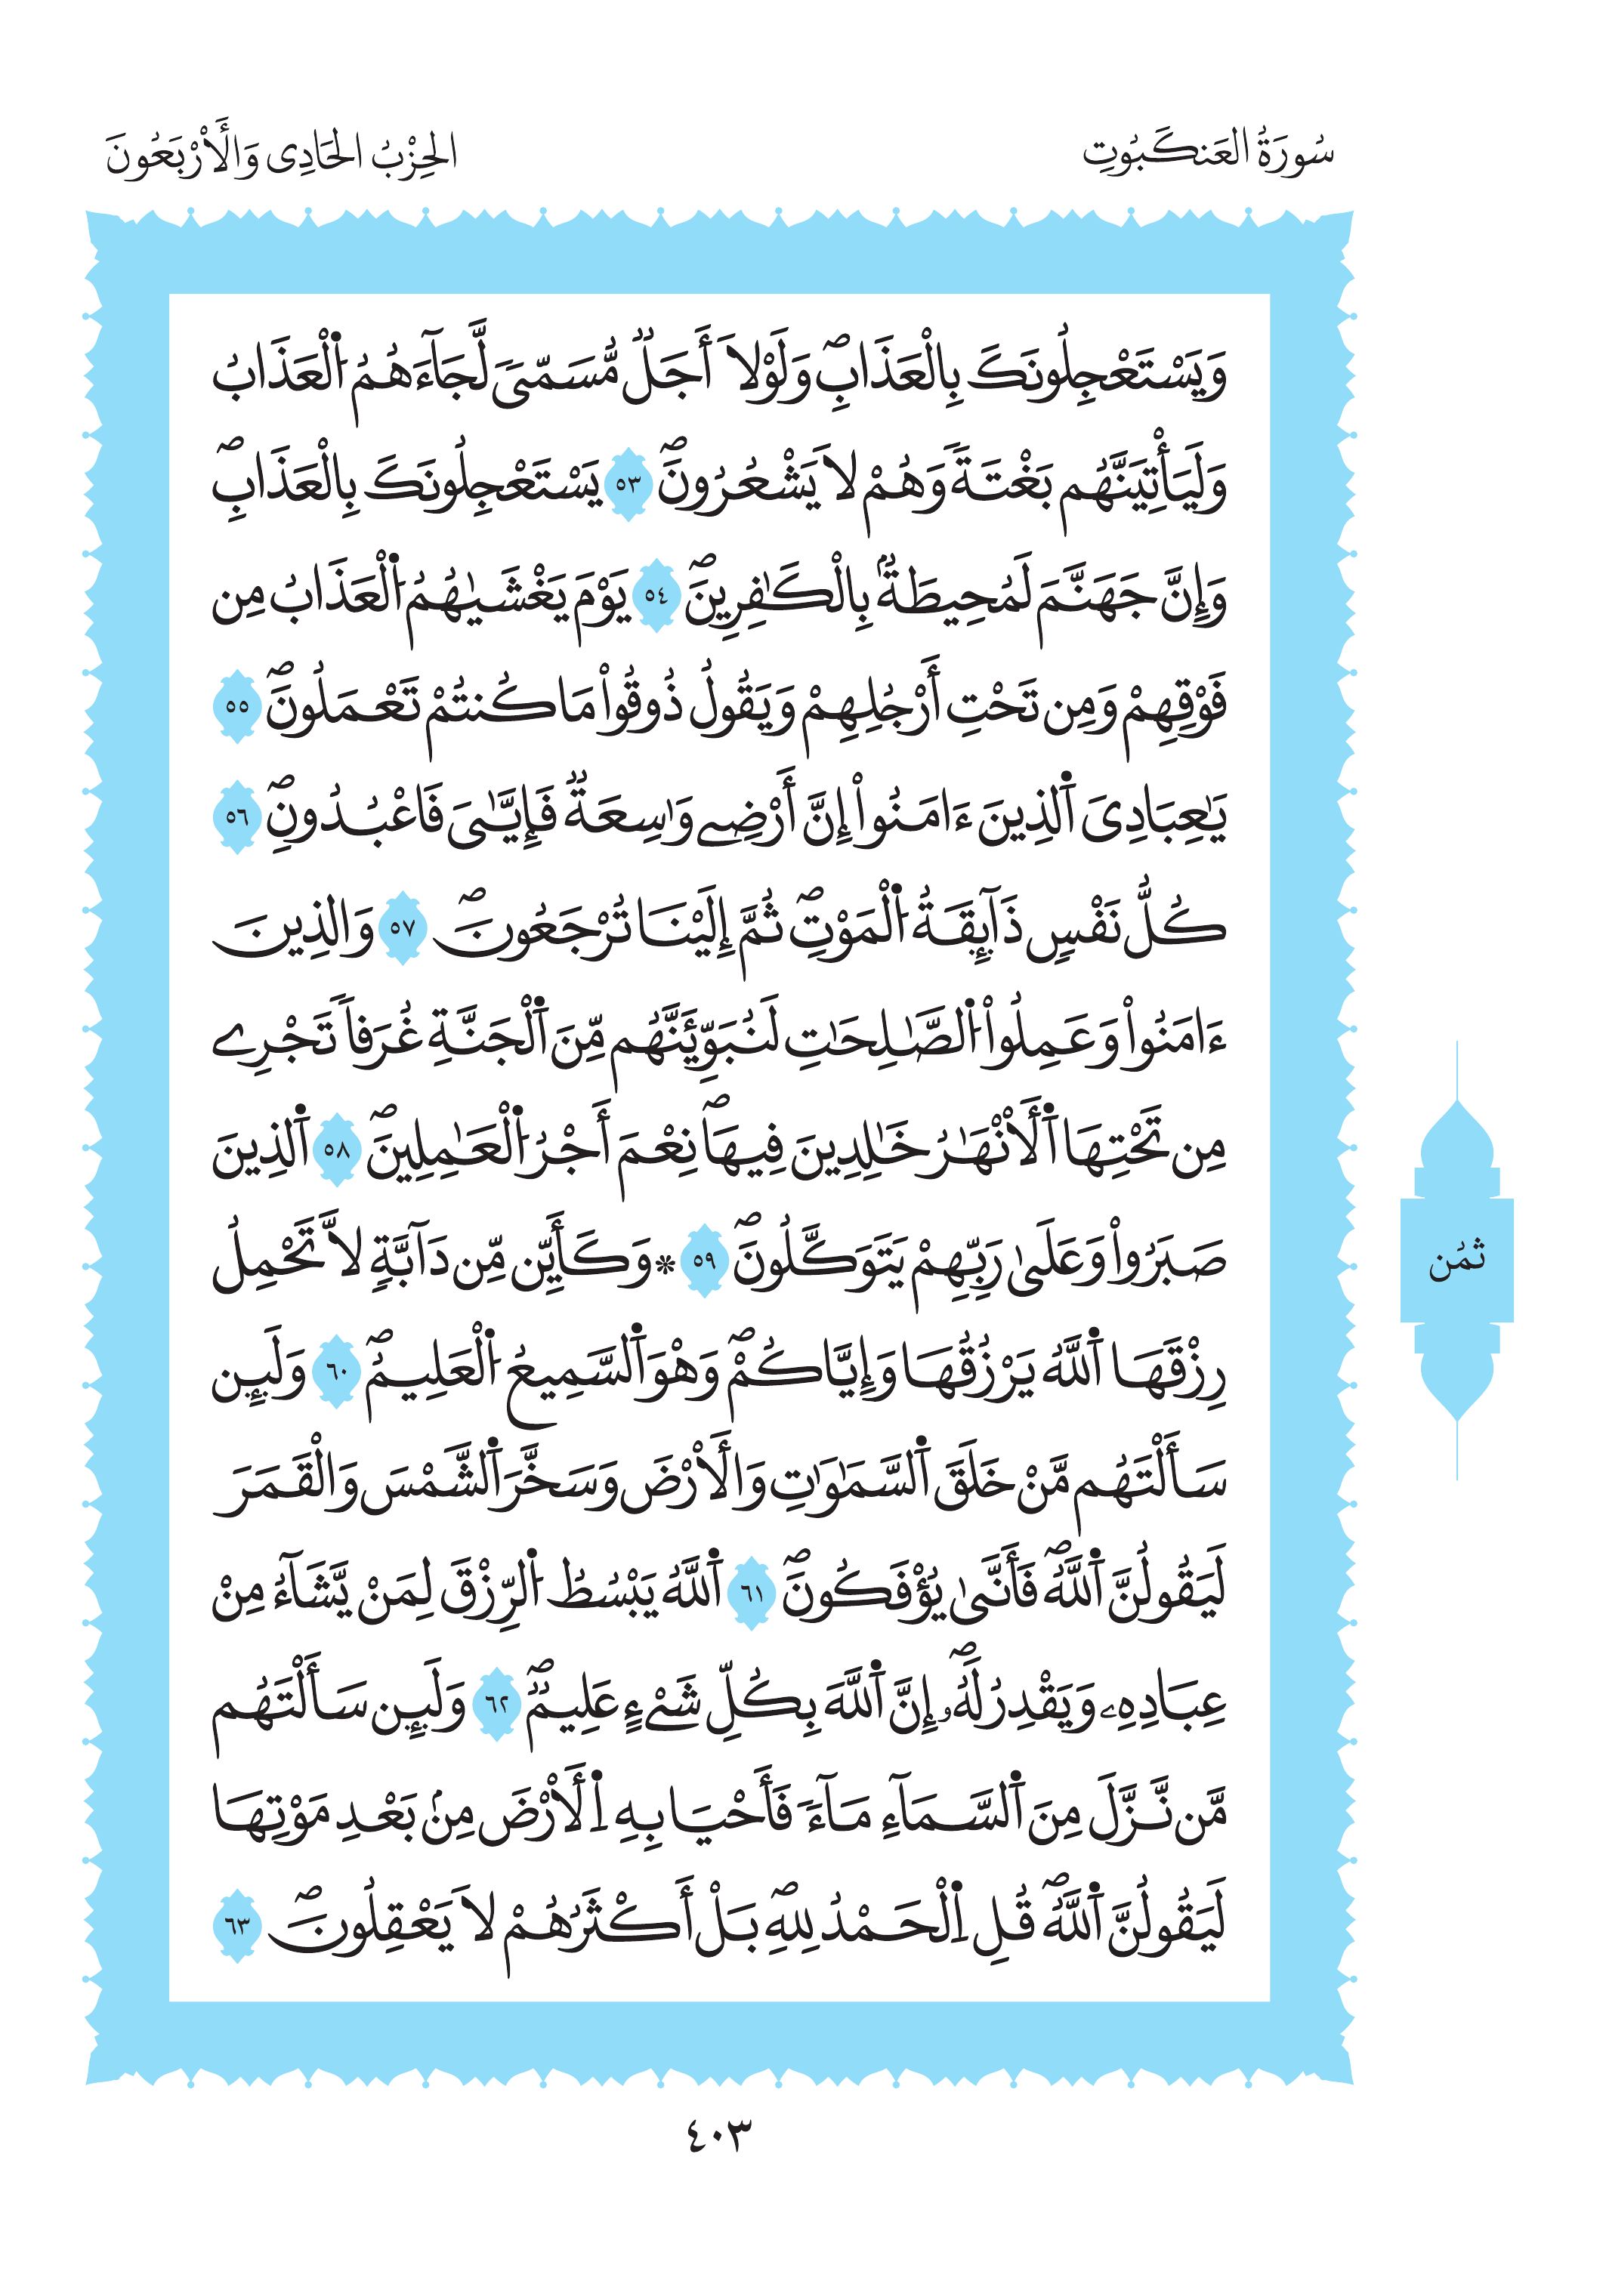 سُورَةُ العَنكَبُوتِ
الحِزْبُ الحَادِى وَالْأَرْبَعُونَ
وَيَسْتَعْجِلُونَكَ بِالْعَذَابِۖ وَلَوْلَآ أَجَلٞ مُّسَمّيٗ لَّجَآءَهُمُ اُ۬لْعَذَابُ
وَلَيَأْتِيَنَّهُم بَغْتَةٗ وَهُمْ لَا يَشْعُرُونَۖ ٥٣ يَسْتَعْجِلُونَكَ بِالْعَذَابِۖ
وَإِنَّ جَهَنَّمَ لَمُحِيطَةُۢ بِالْكَٰفِرِينَۖ ٥٤ يَوْمَ يَغْشَيٰهُمُ اُ۬لْعَذَابُ مِن
فَوْقِهِمْ وَمِن تَحْتِ أَرْجُلِهِمْ وَيَقُولُ ذُوقُواْ مَا كُنتُمْ تَعْمَلُونَۖ ٥٥
يَٰعِبَادِىَ اَ۬لذِينَ ءَامَنُواْ إِنَّ أَرْضِے وَٰسِعَةٞ فَإِيَّٰىَ فَاعْبُدُونِۖ ٥٦
كُلُّ نَفْسٖ ذَآئِقَةُ اُ۬لْمَوْتِۖ ثُمَّ إِلَيْنَا تُرْجَعُونَۖ ٥٧ وَالذِينَ
ءَامَنُواْ وَعَمِلُواْ اُ۬لصَّٰلِحَٰتِ لَنُبَوِّئَنَّهُم مِّنَ اَ۬لْجَنَّةِ غُرَفاٗ تَجْرِے
مِن تَحْتِهَا اَ۬لْأَنْهَٰرُ خَٰلِدِينَ فِيهَاۖ نِعْمَ أَجْرُ اُ۬لْعَٰمِلِينَۖ ٥٨ اَ۬لذِينَ
صَبَرُواْ وَعَلَىٰ رَبِّهِمْ يَتَوَكَّلُونَۖ ٥٩ * وَكَأَيِّن مِّن دَآبَّةٖ لَّا تَحْمِلُ
رِزْقَهَا اَ۬للَّهُ يَرْزُقُهَا وَإِيَّاكُمْۖ وَهْوَ اَ۬لسَّمِيعُ اُ۬لْعَلِيمُۖ ٦٠ وَلَئِن
سَأَلْتَهُم مَّنْ خَلَقَ اَ۬لسَّمَٰوَٰتِ وَالْأَرْضَ وَسَخَّرَ اَ۬لشَّمْسَ وَالْقَمَرَ
لَيَقُولُنَّ اَ۬للَّهُۖ فَأَنَّىٰ يُؤْفَكُونَۖ ٦١ اَ۬للَّهُ يَبْسُطُ اُ۬لرِّزْقَ لِمَنْ يَّشَآءُ مِنْ
عِبَادِهِۦ وَيَقْدِرُ لَهُۥۖ إِنَّ اَ۬للَّهَ بِكُلِّ شَےْءٍ عَلِيمٞۖ ٦٢ وَلَئِن سَأَلْتَهُم
مَّن نَّزَّلَ مِنَ اَ۬لسَّمَآءِ مَآءٗ فَأَحْيَا بِهِ اِ۬لْأَرْضَ مِنۢ بَعْدِ مَوْتِهَا
لَيَقُولُنَّ اَ۬للَّهُۖ قُلِ اِ۬لْحَمْدُ لِلهِۖ بَلْ أَكْثَرُهُمْ لَا يَعْقِلُونَۖ ٦٣
ثمُن
٤٠٣